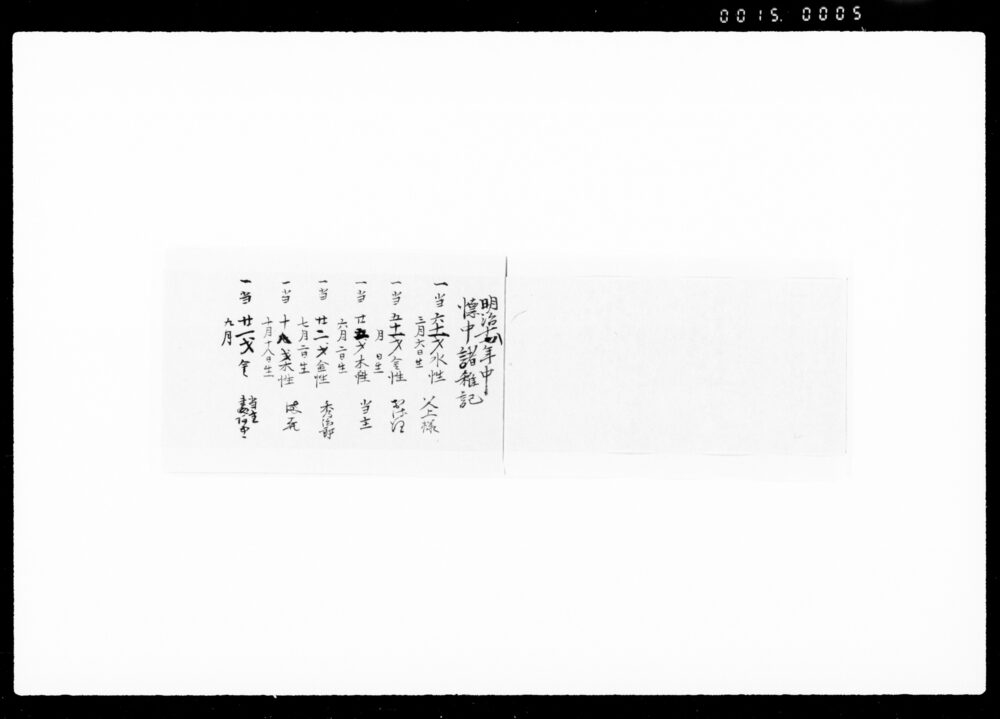 0015. 0005
明治 年中
懐中諸雑記
一当六十一才水性 父上様
三月六日生
一当五十一才金性
月 日生
一当廿五才木性 当主
六月二日生
一当廿二才金性 秀治郎
七月二日生
一当十九才木性
十月十八日生
一当廿一才金 当主妻
九月